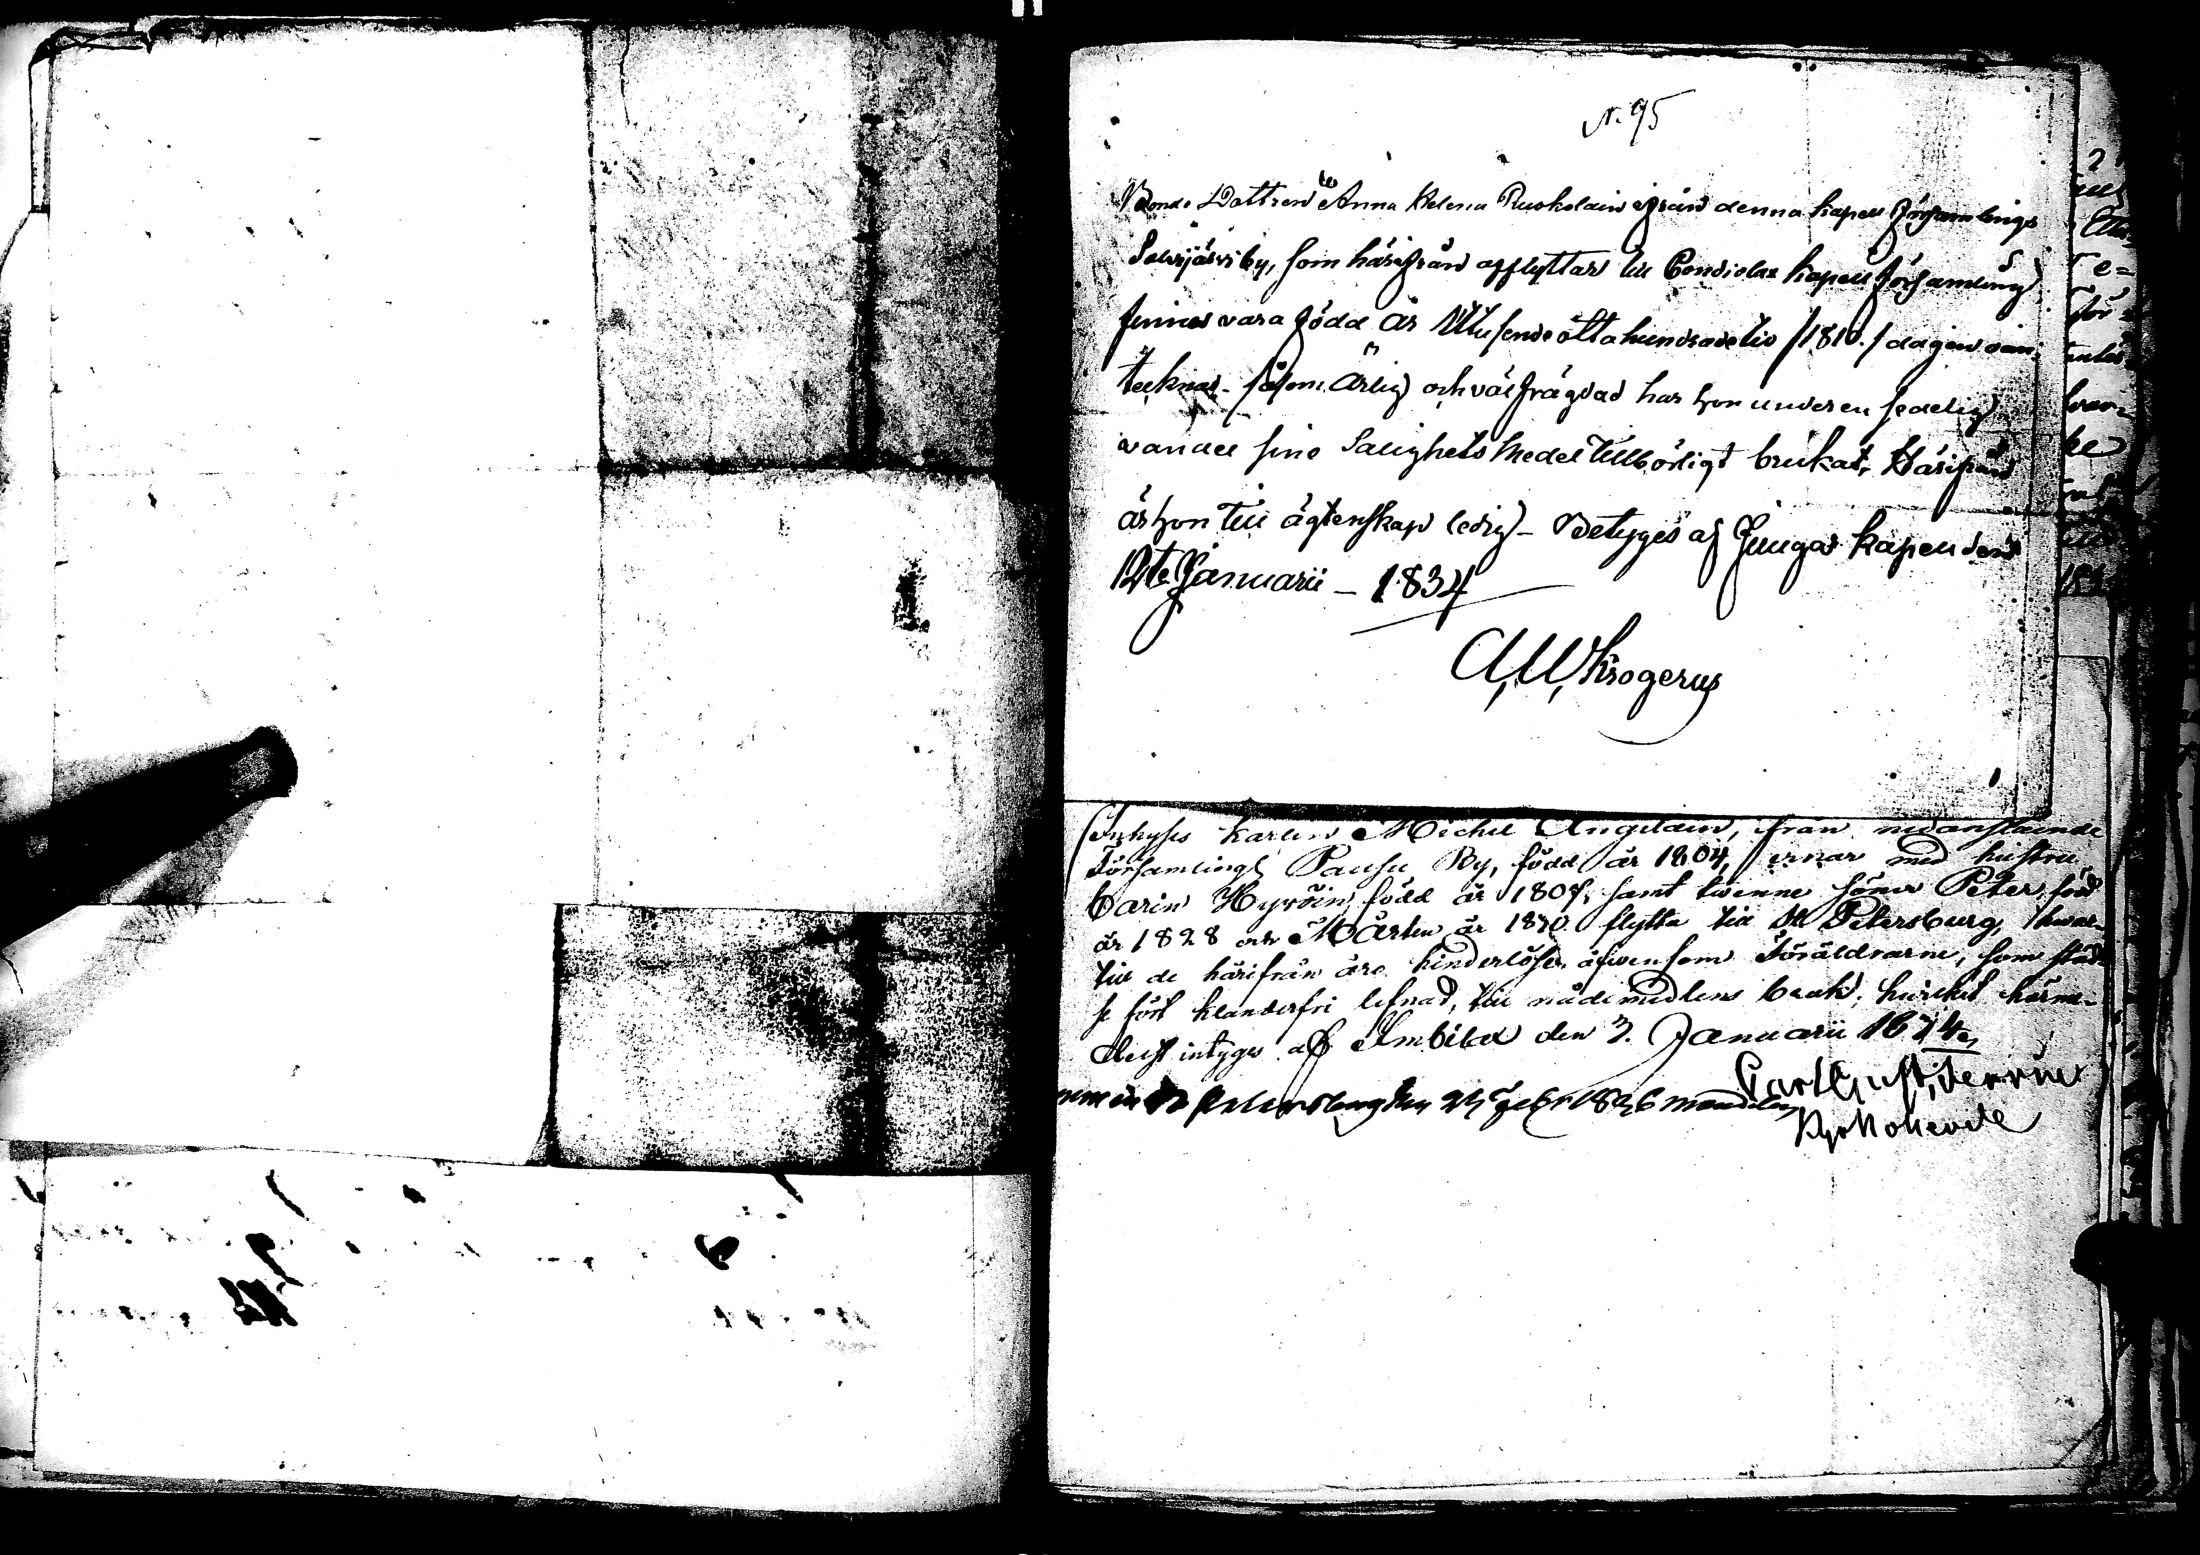 N. 95
Bonde Dottren Anna Helena Ruokolain ifrån denna kapell församlings
Salvijärvi by, som härifrån afflyttar till Condiolax kapell församling,
finnes vara född år Ettusende åttahundrade tio /1810./ dagen oan-
tecknad. Såsom ärlig och välfrägdad har hon under en sedelig
vandel sine Salighets Medel tillbörligt brukat. Härifrån
är hon till ägtenskap ledig. Betyges af Juuga kapell den
12te Januarii – 1834
A, W, Krogerus
Inhyses karlen Michel Angelain, från nedanstående
Församlings Pausu By, född år 1804, ernar med hustru
Carin Hyvöin, född år 1807, samt tvenne söner Peter född
år 1828 och Mårten år 1830 flytta till St Petersburg, hvar-
till de härifrån äro hinderlöse, äfvensom Föräldrarne, som städ-
se fört klanderfri lefnad, till nådemedlens bruk; hvilket härme-
delst intyges af Imbilax den 7. Januarii 1834.
Carl Gust,
Petersburg den Febr 1836
Kyrkoherde